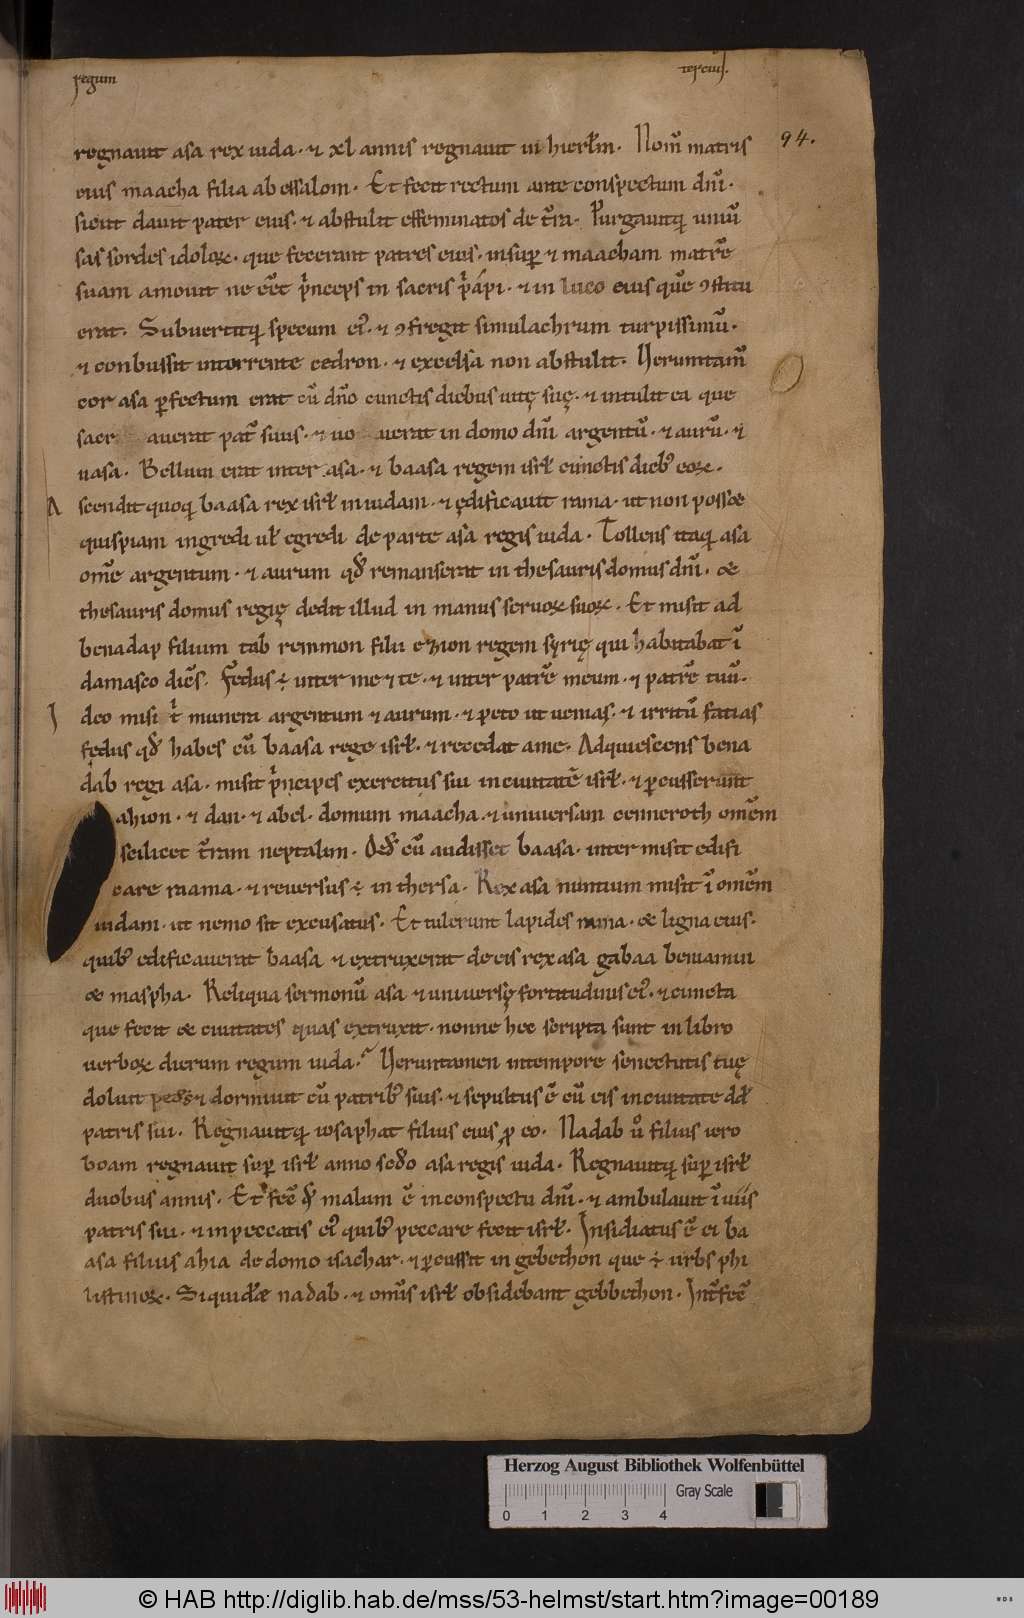 regum
terciuſ.
94.
regnauit aſa rex iuda · ⁊ xl annis regnauit in hierłm · Nom̄ matris
eius maacha filia ab eſſalom · Et fecit rectum ante conspectum dn̄i ·
ſicut dauit pater eius · ⁊ abſtulit effeminatos de t̄ra · Purgauitq; uniū
ſas ſordes idoloꝝ · que fecerant patres eius · inſup̄ ⁊ maacham matrē
ſuam amouit ne eēt p̓nceps in ſacris p̓api · ⁊ in luco eius quē ꝯſtitu
erat · Subuertitq; ſpecum ei᷒ · ⁊ ꝯfregit ſimulachrum turpiſſimū ·
⁊ conbuſſit intorrente cedron · ⁊ excelſa non abſtulit · Ueruntam̄
cor aſa ꝑfectum erat cū dn̄o cunctis diebus uitę ſuę · ⁊ intulit ea que
ſacr auerat pat̄ ſuus · ⁊ uo uerat in domo dn̄i argentū · ⁊ aurū · ⁊
uaſa · Bellum erat inter aſa · ⁊ baaſa regem iſrł cunctis dieb᷒ eoꝝ ·
A ſcendit quoq; baaſa rex iſrł in iudam · ⁊ ędificauit rama · ut non poſſ&
quiſpiam ingredi uł egredi de parte aſa regis iuda · Tollens itaq; aſa
om̄e argentum · ⁊ aurum qđ remanſerat in theſauris domus dn̄i · &
theſauris domus regię dedit illud in manus ſeruoꝝ ſuoꝝ · Et miſit ad
benadap filium tab remmon filii ezion regem ſyrię qui habitabat ī
damaſco diēs · Fedus ÷ inter me ⁊ te · ⁊ inter patrē meum · ⁊ patrē tuū ·
I deo miſi t̓ munera argentum ⁊ aurum · ⁊ peto ut uenias · ⁊ irritū fatias
fędus qđ habes cū baaſa rege iſrł · ⁊ recedat ame · Adquieſcens bena
dab regi aſa · miſit p̓ncipes exercitus ſui in ciuitatē iſrł · ⁊ ꝑcuſſerunt
ahion · ⁊ dan · ⁊ abel · domum maacha · ⁊ uniuerſam cenneroth om̄em
ſcilicet t̄ram neptalim · Qđ cū audiſſet baaſa · inter miſit edifi
care raama · ⁊ reuerſus ÷ in therſa · Rex aſa nuntium miſit ī om̄em
iudam · ut nemo ſit excuſatus · Et tulerunt lapides rama · & ligna eius ·
quib᷒ edificauerat baaſa ⁊ extruxerat de eis rex aſa gabaa beniamin
& maſpha · Reliqua ſermonū aſa ⁊ uniuerſę fortitudinis ei᷒ · ⁊ cuncta
que fecit & ciuitates quas extruxit · nonne hec ſcripta ſunt in libro
uerboꝝ dierum regum iuda · Ueruntamen intempore ſenectutis ſuę
doluit pedes ⁊ dormiuit cū patrib᷒ ſuis · ⁊ ſepultus ē cū eis in ciuitate dđ
patris ſui · Regnauitq; ioſaphat filius eius ꝓ eo · Nadab u̓ filius iero
boam regnauit ſup̄ iſrł anno ſcđo aſa regis iuda · Regnauitq; ſup̄ iſrł
duobus annis · Et fec̄ qđ malum ē inconſpectu dn̄i · ⁊ ambulauit ī uiis
patris ſui · ⁊ in peccatis ei᷒ quib᷒ peccare fecit iſrł · Inſidiatus ē ei ba
aſa filius ahia de domo iſachar · ⁊ ꝑcuſſit in gebethon que ÷ urbs phi
liſtinoꝝ · Siquidē nadab · ⁊ om̄s iſrł obſidebant gebbethon · Int̄fec̄
Herzog August Bibliothek Wolfenbüttel
Gray Scale
0 1 2 3 4
© HAB http://diglib.hab.de/mss/53-helmst/start.htm?image=00189